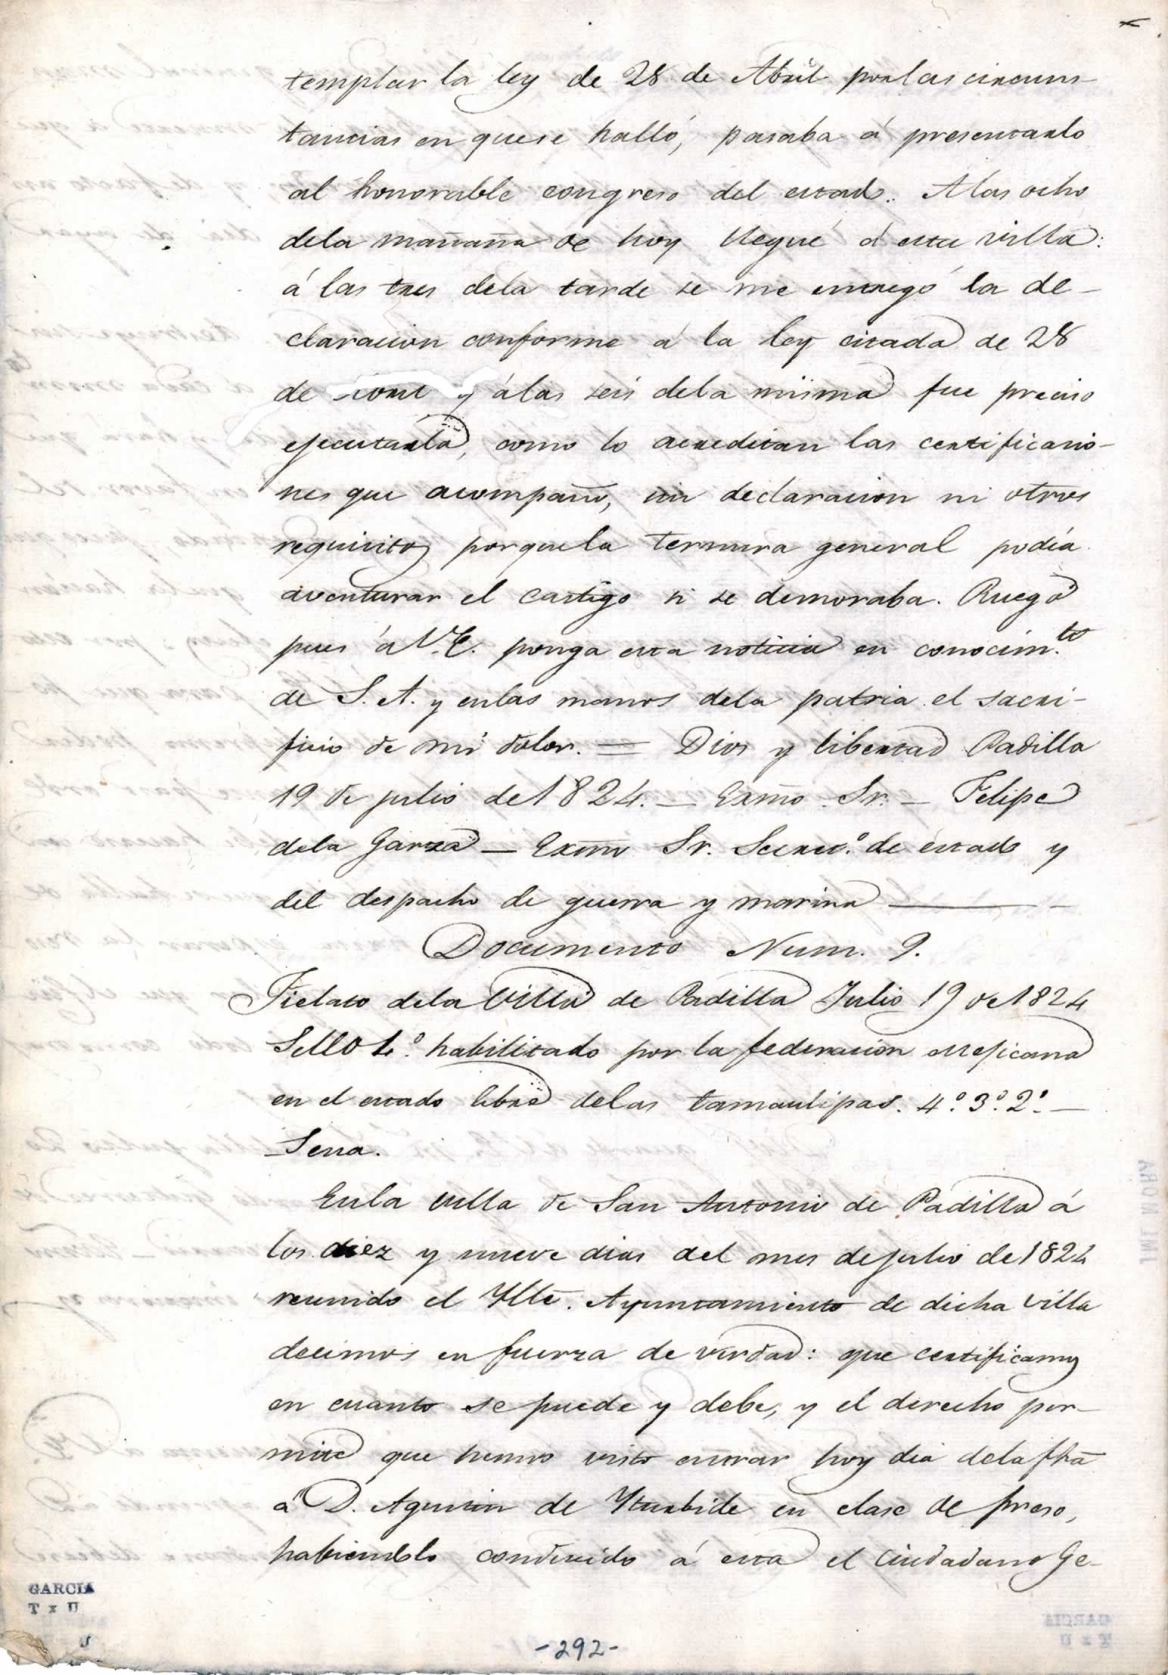 templar la ley de 28 de Abril por las circuns-
tancias en que se halló, pasaba á presentarlo
al honorable congreso del estado. A las ocho
dela mañana de hoy llegué á esta villa:
á las tres dela tarde se me entregó la de-
claracion conforme á la ley citada de 28
de y álas seis dela misma fue preciso
ejecutarla, como lo acreditan las certificacio-
nes que acompaño, sin declaracion ni otros
requisitos porquela ternura general podía
aventurar el castigo si se demoraba. Ruego
pues á V.E. ponga esta noticia en conocim.to
de S. A. y enlas manos dela patria el sacri-
ficio de mi dolor. = Dios y libertad Padilla
19 de julio de 1824. — Exmo. Sr. — Felipe
dela Garza — Exmo Sr. Secret.o de estado y
del despacho de guerra y marina —
Documento Num. 9.
Fielato dela Villa de Padilla Julio 19 de 1824
Sello 4.o habilitado por la federacion Mejicana
en el estado libre delas tamaulipas. 4.o 3.o 2.o —
Serra.
Enla villa de San Antonio de Padilla á
los diez y nueve dias del mes de julio de 1824
reunido el Ylte. Ayuntamiento de dicha villa
decimos en fuerza de verdad: que certificamos
en cuanto se puede y debe, y el derecho per-
mite que hemos visto entrar hoy dia dela fha
á D. Agustin de Yturbide en clase de preso,
habiendolo conducido á esta el ciudadano Ge-
GARCIA
T x U
-292-